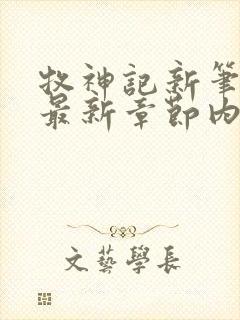 牧神記新筆
最新章節內
文藝學長